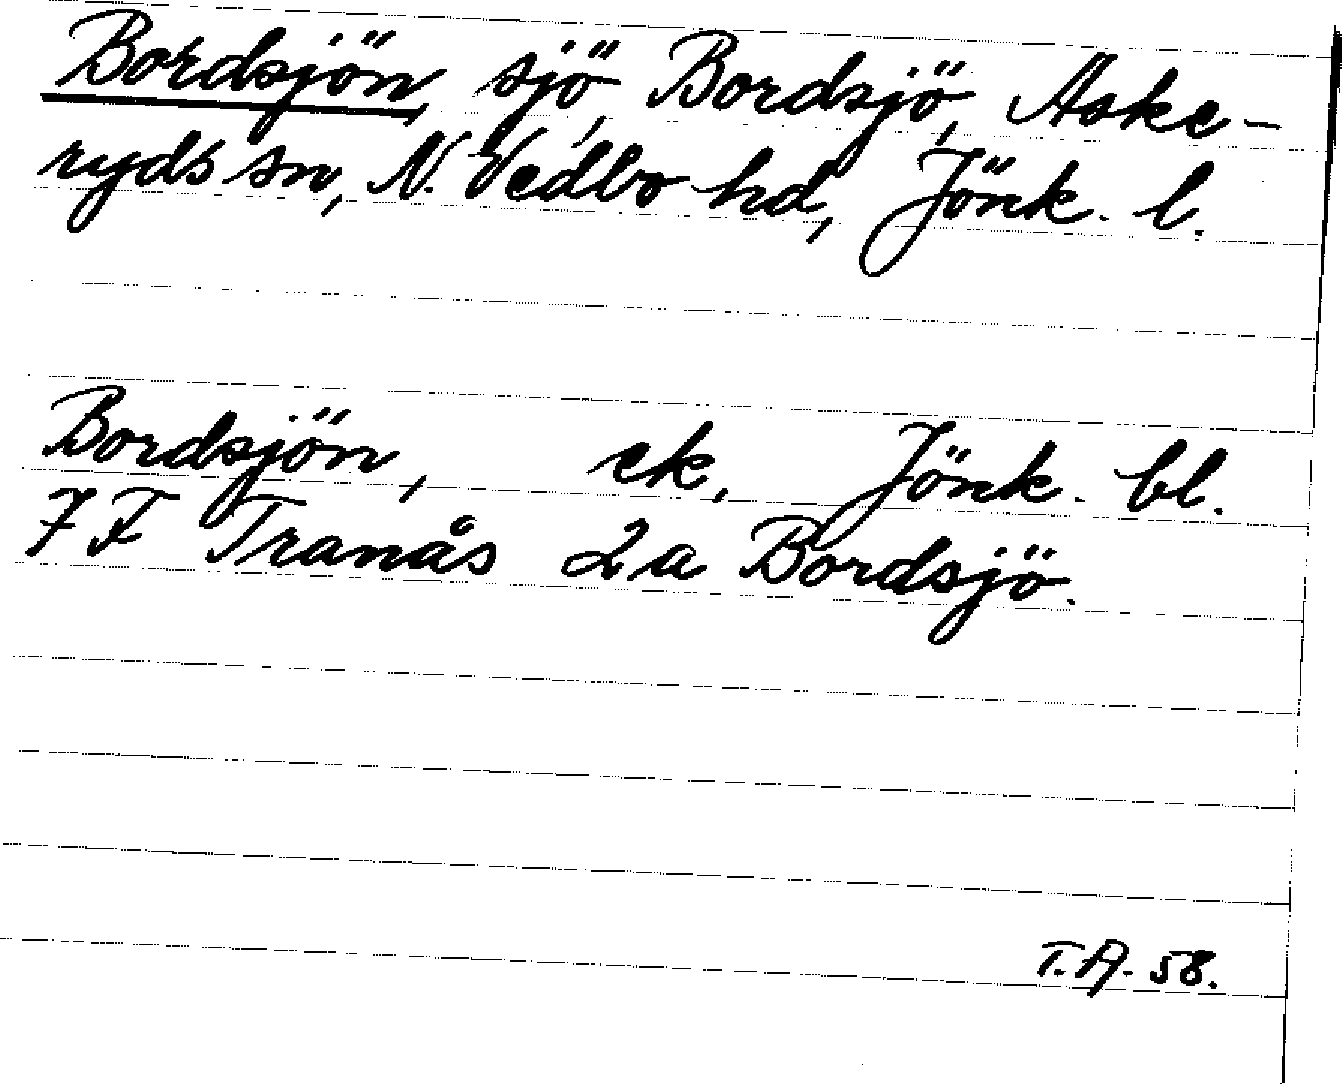 Bordsjön, sjö, Bordsjö, Aske-
ryds sn, N. Vedbo hd, Jönk. l.
Bordsjön, ek, Jönk. bl.
7 F Tranås 2a Bordsjö.
T.A. 58.